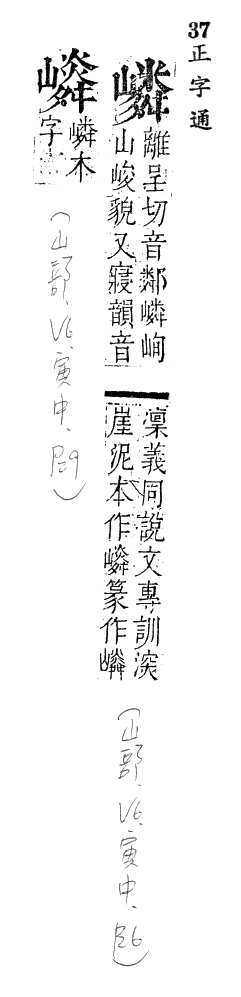 37正字通
嶙
離呈切音鄰嶙峋
山峻貌又寢韻音
凜義同說文專訓深
崖泥本作篆作
(山部, V6, 寅中, P26)
嶙本
字
(山部, V6, 寅中, P29)